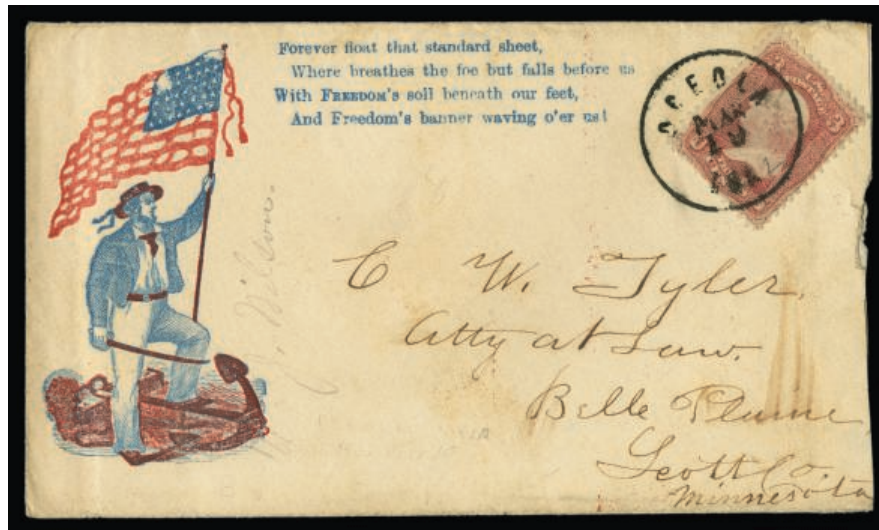 Forever float that standard sheet,
Where breathes the foe but falls before us
With FREEDOM'S soil beneath our feet,
And Freedom's banner waving o'er us!
OREDA
MAR
1862
C W. Tyler.
Atty at Law.
Belle Plaine
Scott Co
Minnesota
Wilson.